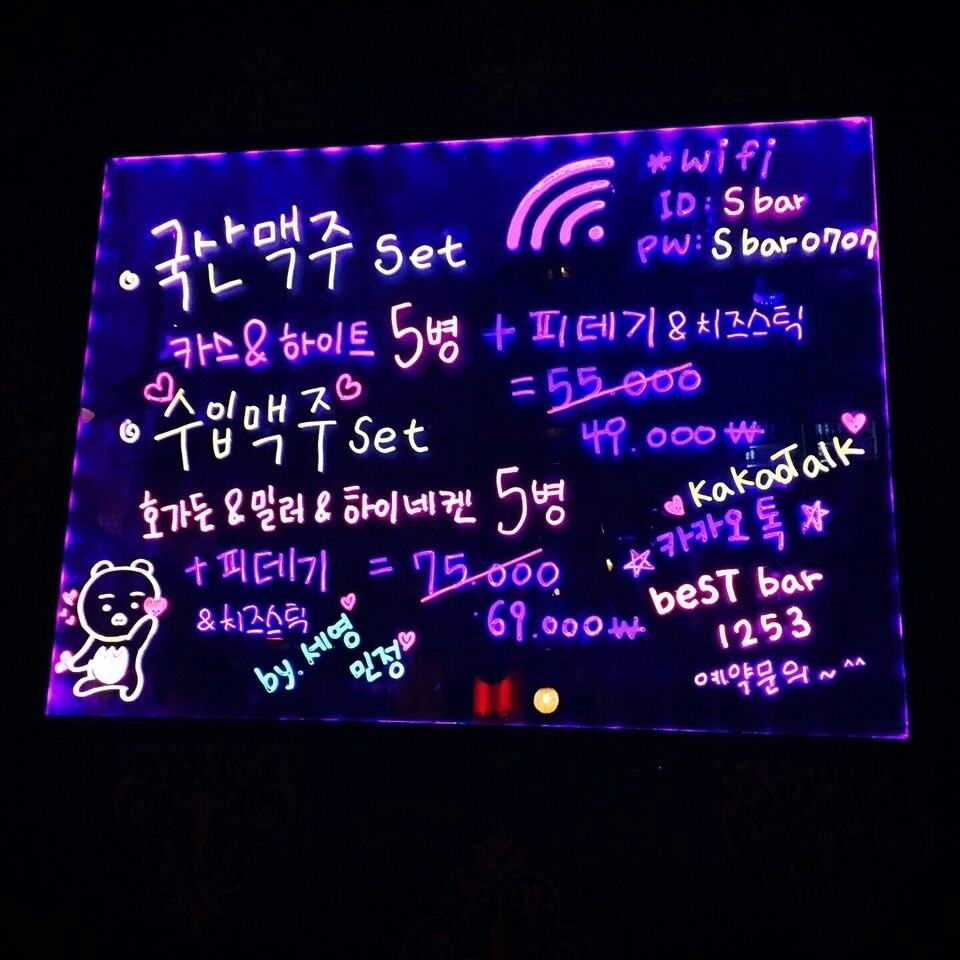 * wifi
ID: S bar
PW: S bar0707
국산맥주 Set
카스 & 하이트 5병 + 피데기 & 치즈스틱
= 55.000
49.000 ₩
수입맥주 Set
호가든 & 밀러 & 하이네켄 5병
+ 피데기 = 75.000
& 치즈스틱 69.000 ₩
by. 세영
민정
KakaoTalk
카카오톡
beST bar
1253
예약문의 ~ ^^